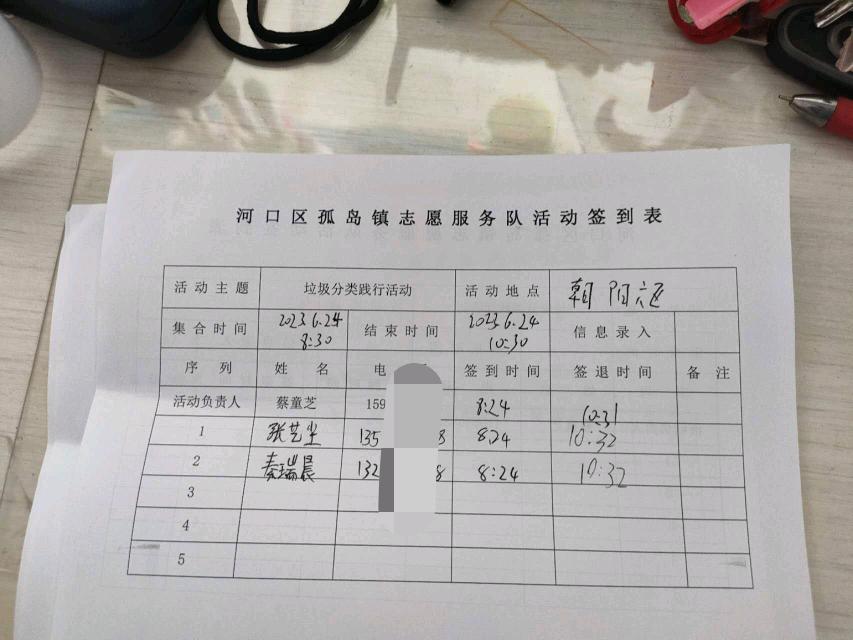 河口区孤岛镇志愿服务队活动签到表
活动主题 垃圾分类践行活动 活动地点 朝阳六区
集合时间 2023.6.24 8:30 结束时间 2023.6.24 10:30 信息录入
序列 姓名 电 签到时间 签退时间 备注
活动负责人 蔡童芝 159 8:24 10:31
1 张艺 135 8 8:24 10:32
2 秦瑞晨 132 8 8:24 10:32
3
4
5